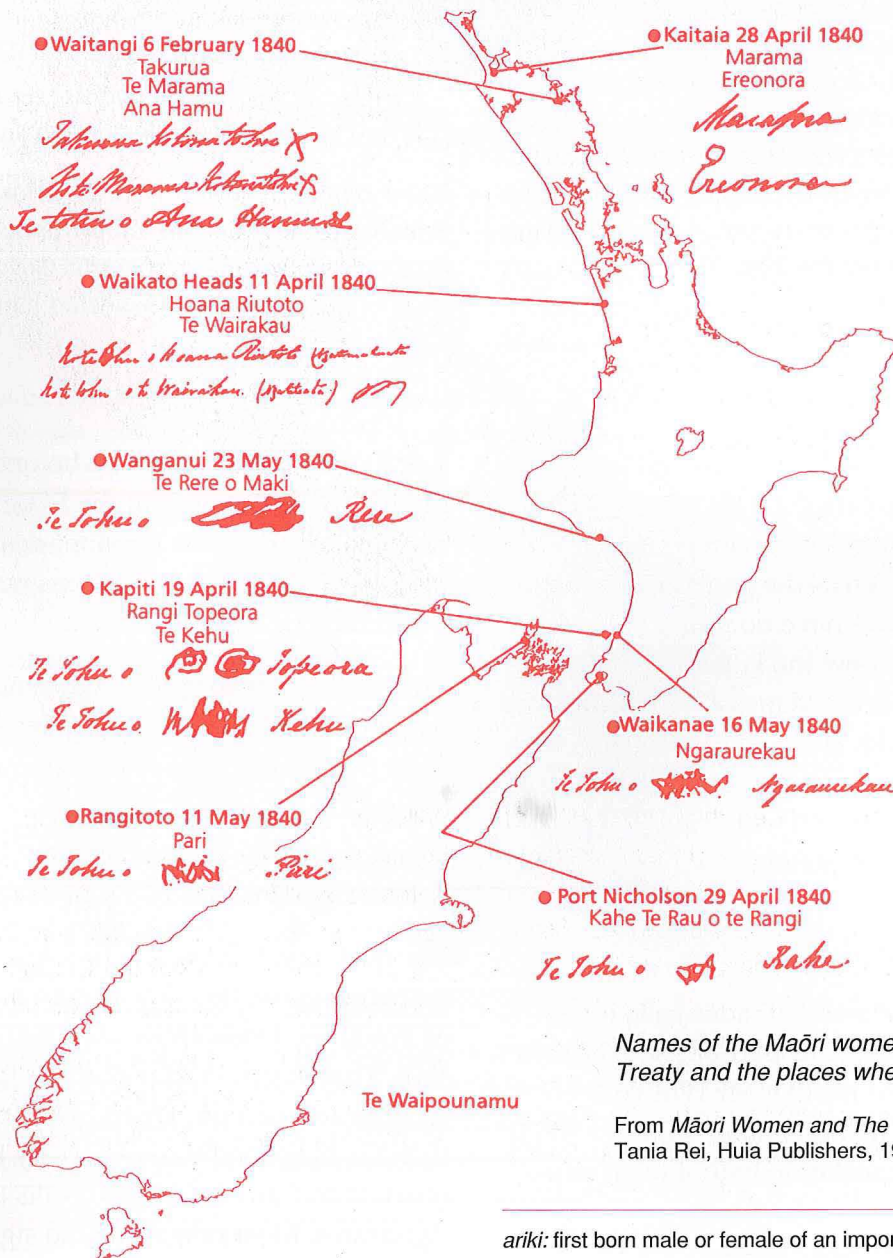 Waitangi 6 February 1840
Takurua
Te Marama
Ana Hamu
Te tohu o Ana Hamu
Kaitaia 28 April 1840
Marama
Ereonora
Marama
Ereonora
Waikato Heads 11 April 1840
Hoana Riutoto
Te Wairakau
Wanganui 23 May 1840
Te Rere o Maki
Te Tohu o Rere
Kapiti 19 April 1840
Rangi Topeora
Te Kehu
Te Tohu o Topeora
Te Tohu o Kehu
Waikanae 16 May 1840
Ngaraurekau
Te Tohu o Ngaraurekau
Rangitoto 11 May 1840
Pari
Te Tohu o Pari
Port Nicholson 29 April 1840
Kahe Te Rau o te Rangi
Te Tohu o Kahe
Names of the Maōri wome
Treaty and the places whe
Te Waipounamu
From Māori Women and The
Tania Rei, Huia Publishers, 19
ariki: first born male or female of an impor